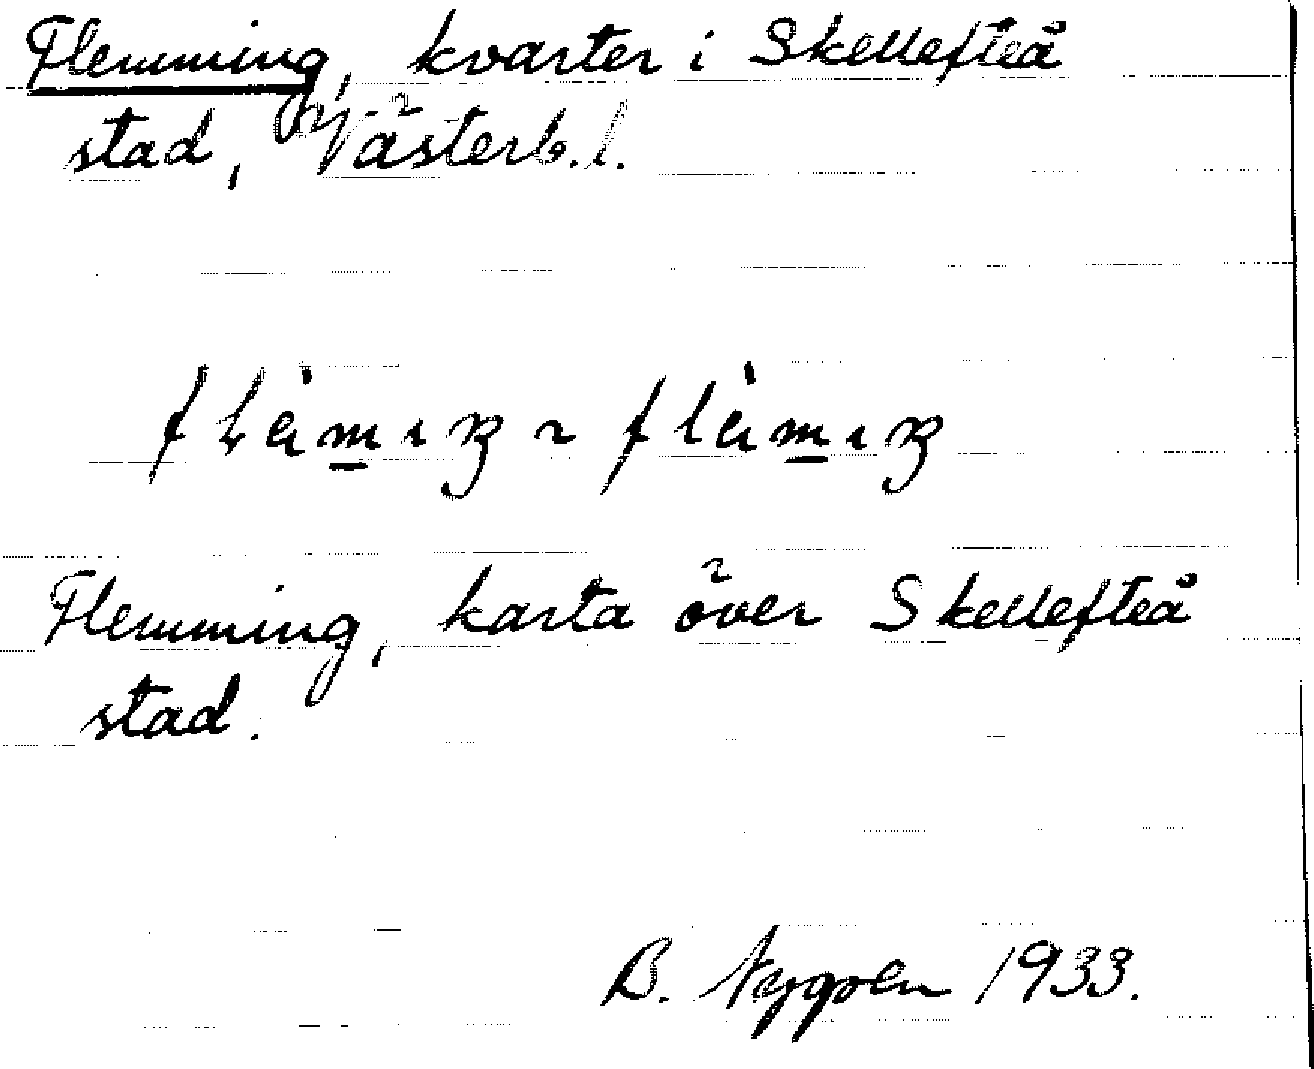 Flemming, kvarter i Skellefteå
stad, Västerb. l.
Flemming, karta över Skellefteå
stad.
B. Nygren 1933.